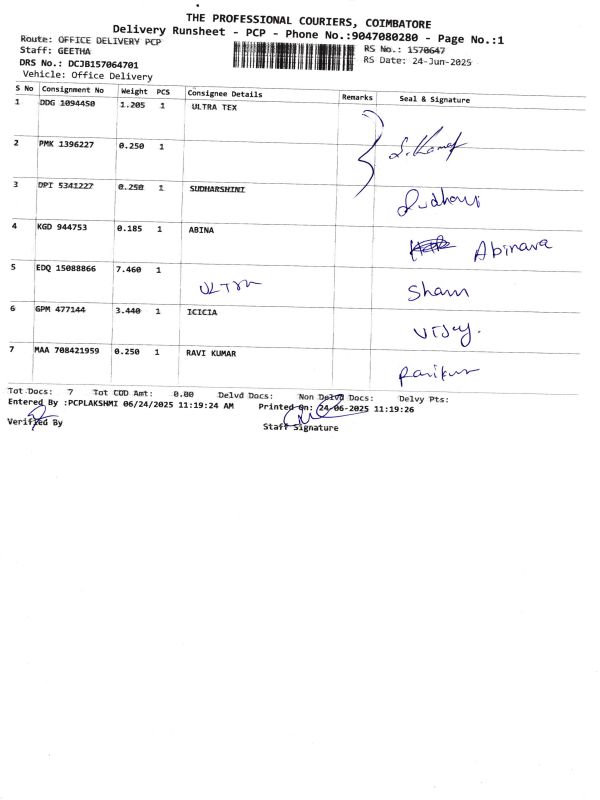 THE PROFESSIONAL COURIERS, COIMBATORE
Delivery Runsheet - PCP - Phone No.:9047080280 - Page No.:1
Route: OFFICE DELIVERY PCP RS No.: 1570647
Staff: GEETHA RS Date: 24-Jun-2025
DRS No.: DCJB157064701
Vehicle: Office Delivery
S No Consignment No Weight PCS Consignee Details Remarks Seal & Signature
1 DDG 1094450 1.205 1 ULTRA TEX
2 PMK 1396227 0.250 1
3 DPI 5341227 0.250 1 SUDHARSHINI
4 KGD 944753 0.185 1 ABINA Abinava
5 EDQ 15088866 7.460 1 Sham
6 GPM 477144 3.440 1 ICICIA Vijay.
7 MAA 708421959 0.250 1 RAVI KUMAR
Tot Docs: 7 Tot COD Amt: 0.00 Delvd Docs: Non Delvd Docs: Delvy Pts:
Entered By :PCPLAKSHMI 06/24/2025 11:19:24 AM Printed On: 24-06-2025 11:19:26
Verified By Staff Signature